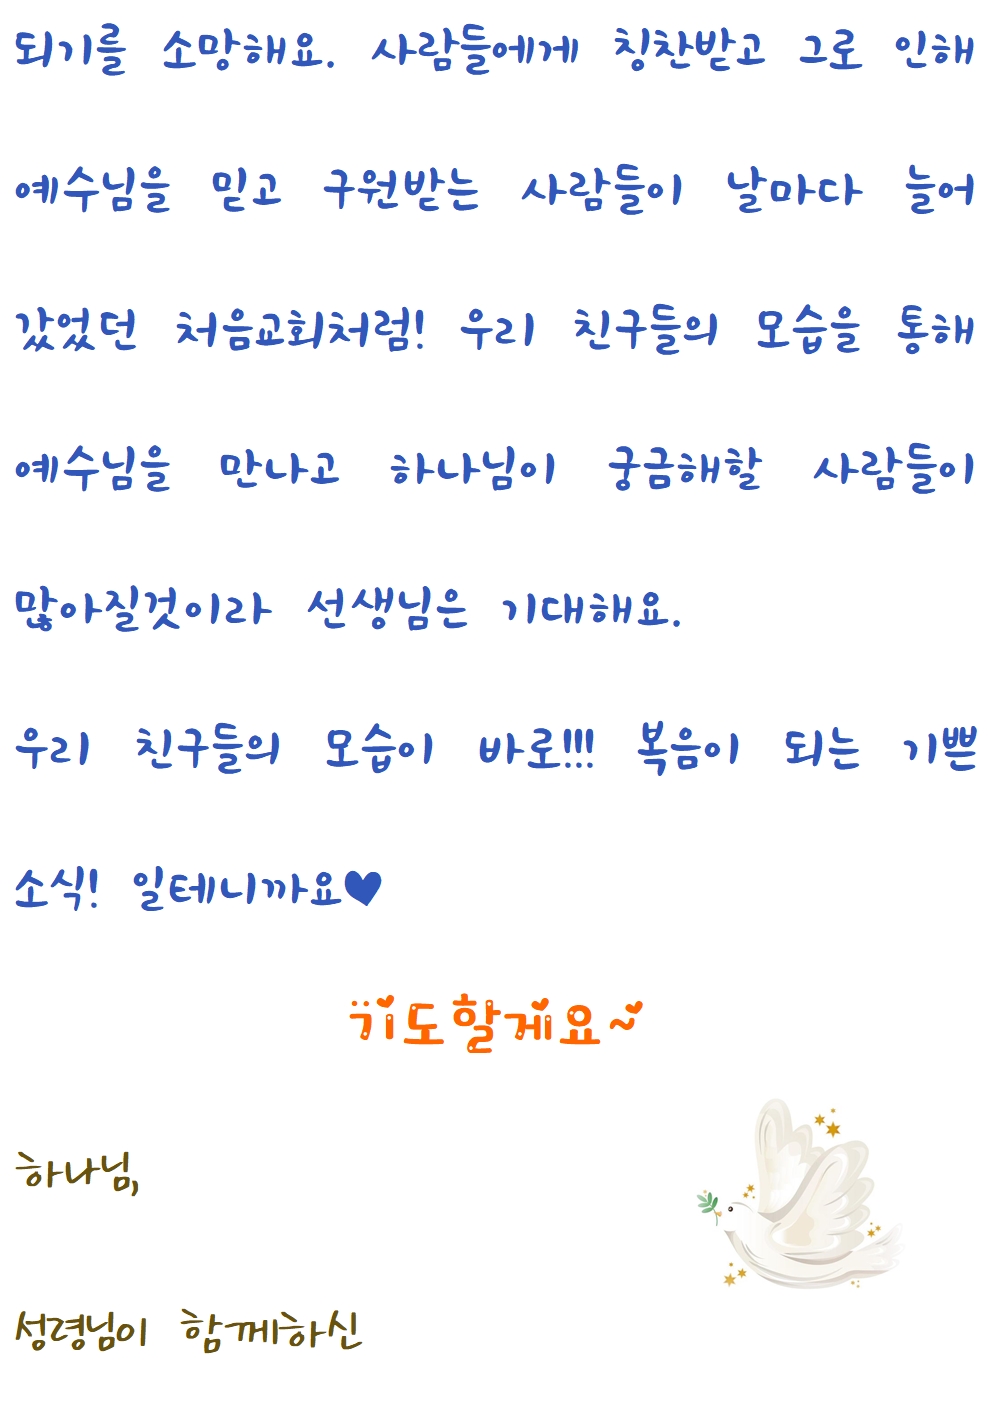 되기를 소망해요. 사람들에게 칭찬받고 그로 인해
예수님을 믿고 구원받는 사람들이 날마다 늘어
갔었던 처음교회처럼! 우리 친구들의 모습을 통해
예수님을 만나고 하나님이 궁금해할 사람들이
많아질것이라 선생님은 기대해요.
우리 친구들의 모습이 바로!!! 복음이 되는 기쁜
소식! 일테니까요♥
기도할게요~
하나님,
성령님이 함께하신